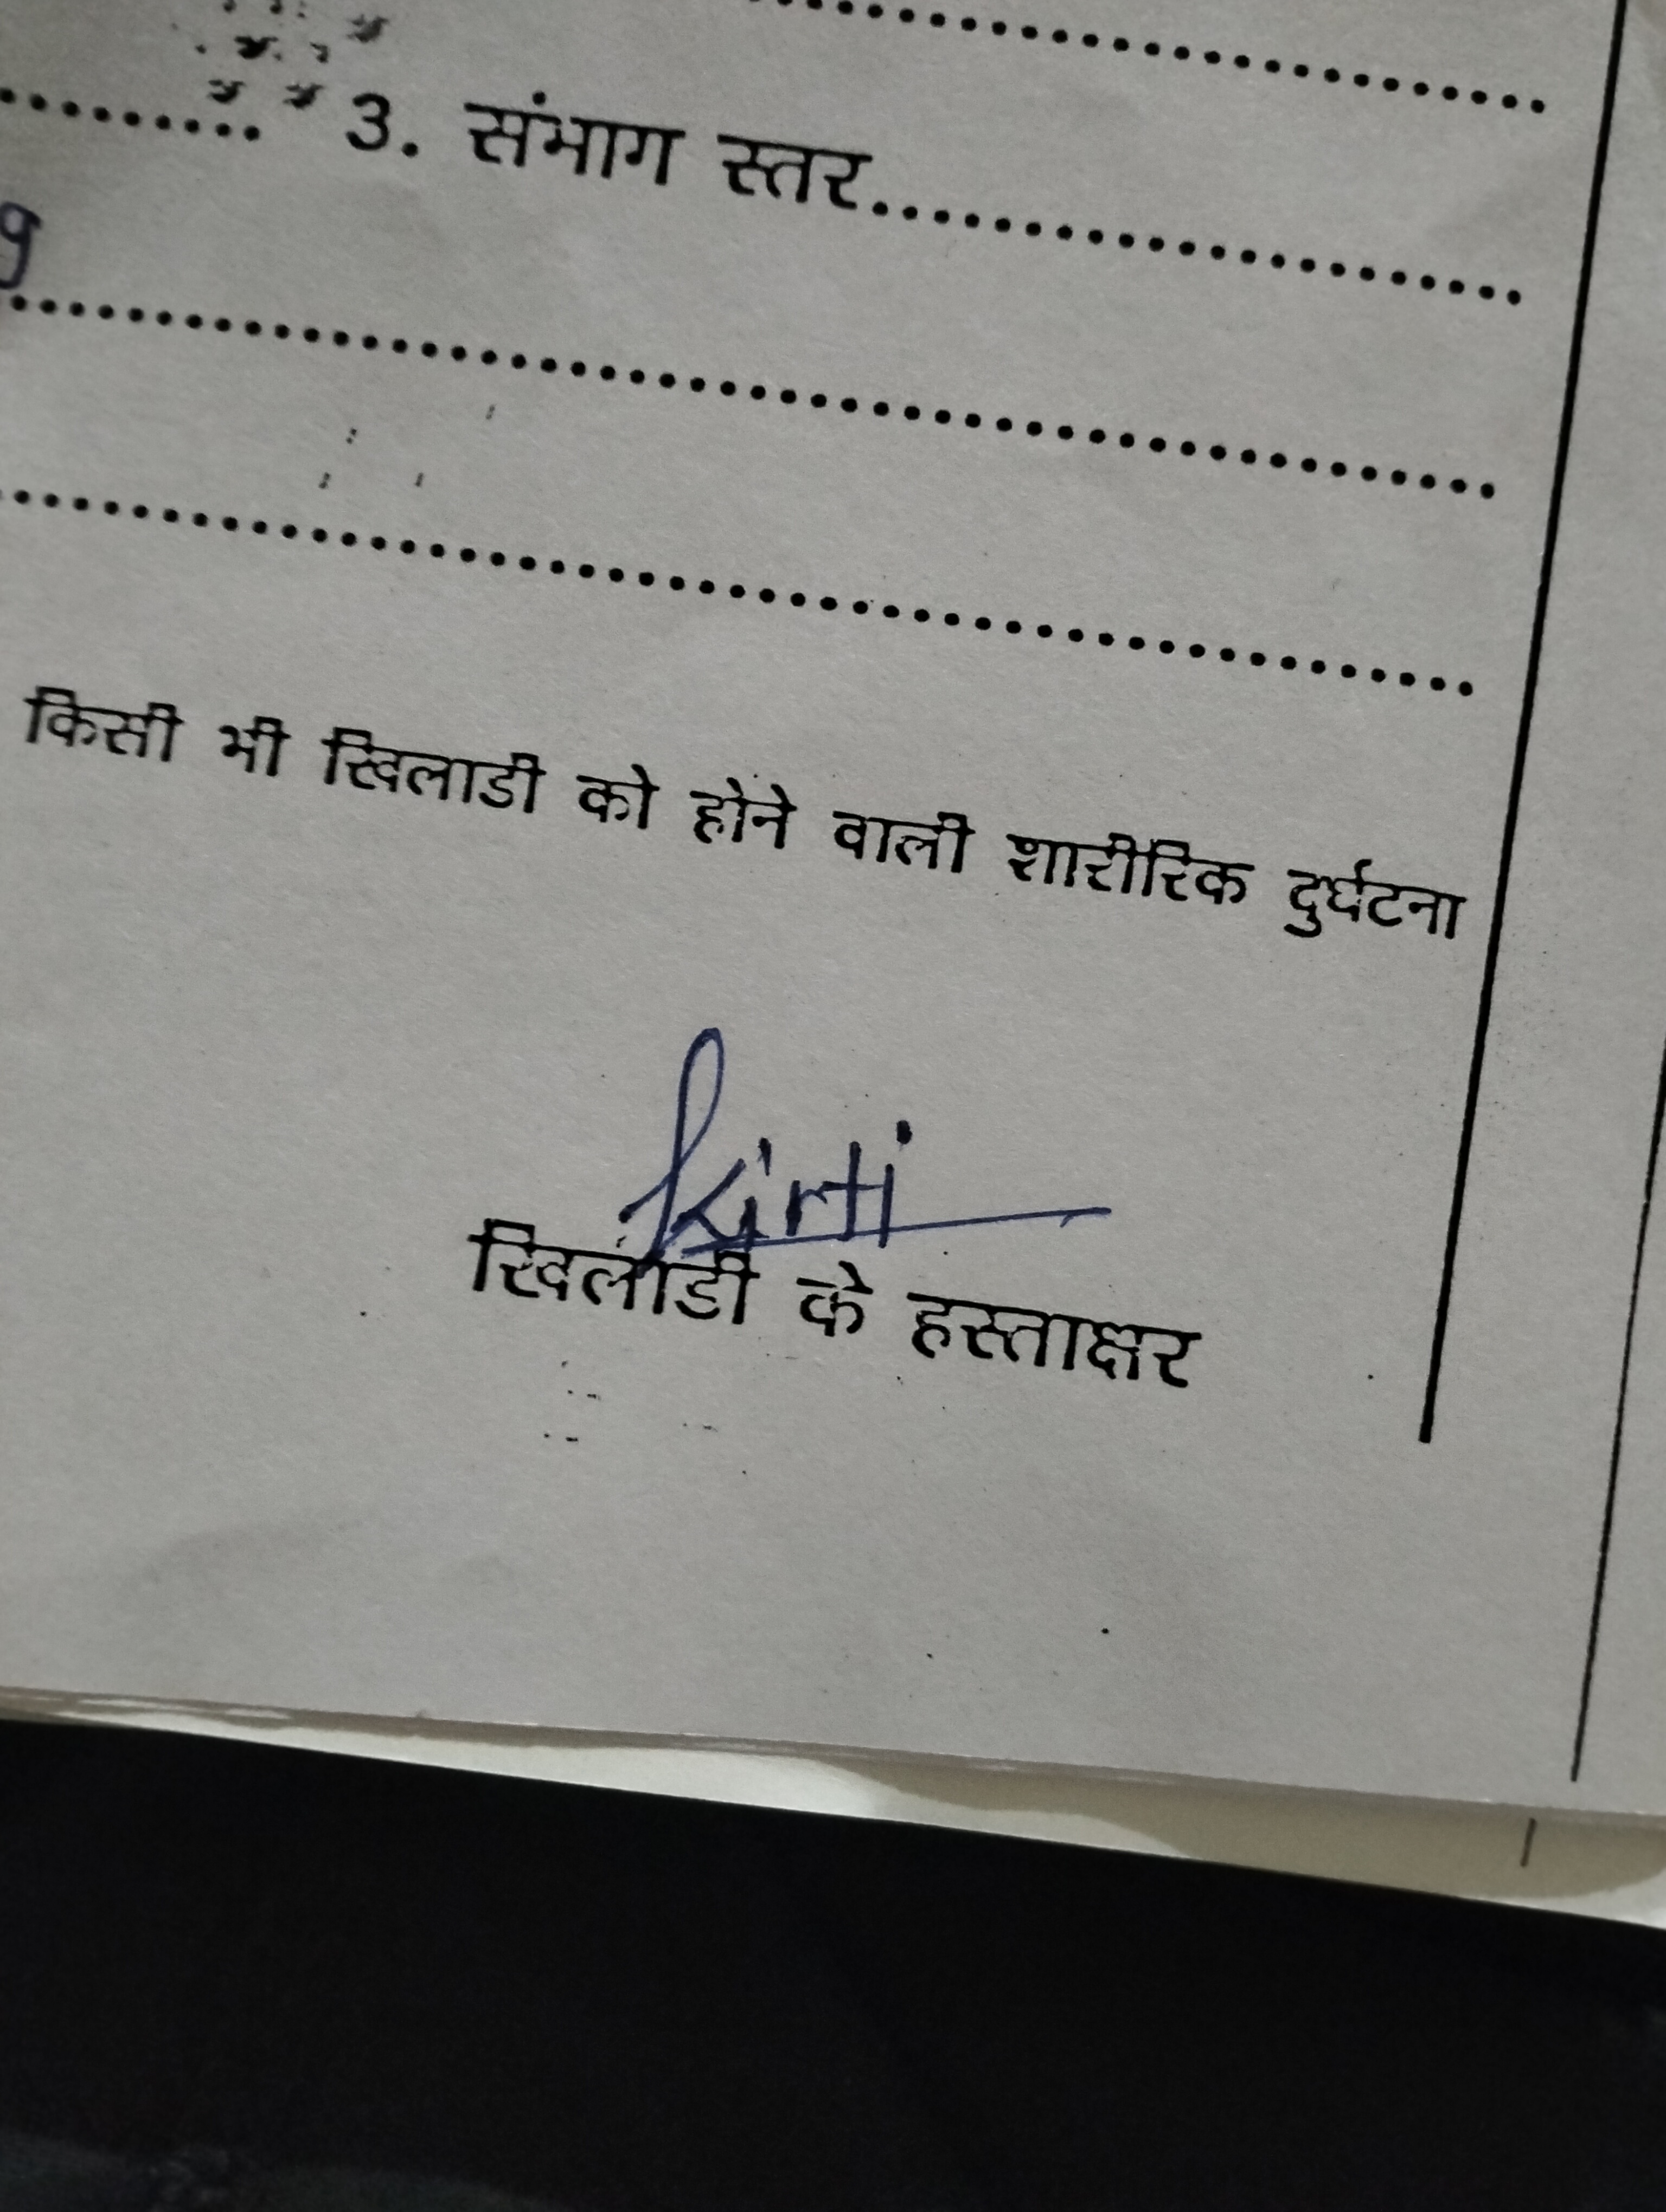 3. संभाग स्तर........................
9
किसी भी खिलाडी को होने वाली शारीरिक दुर्घटना
Kirti
खिलाडी के हस्ताक्षर